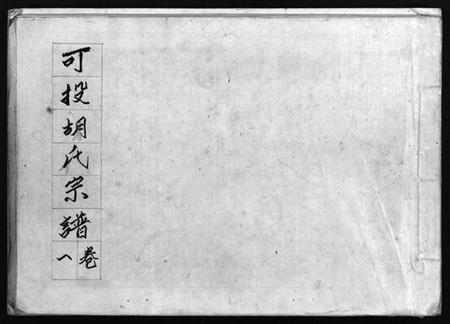 可投胡氏宗譜
卷八